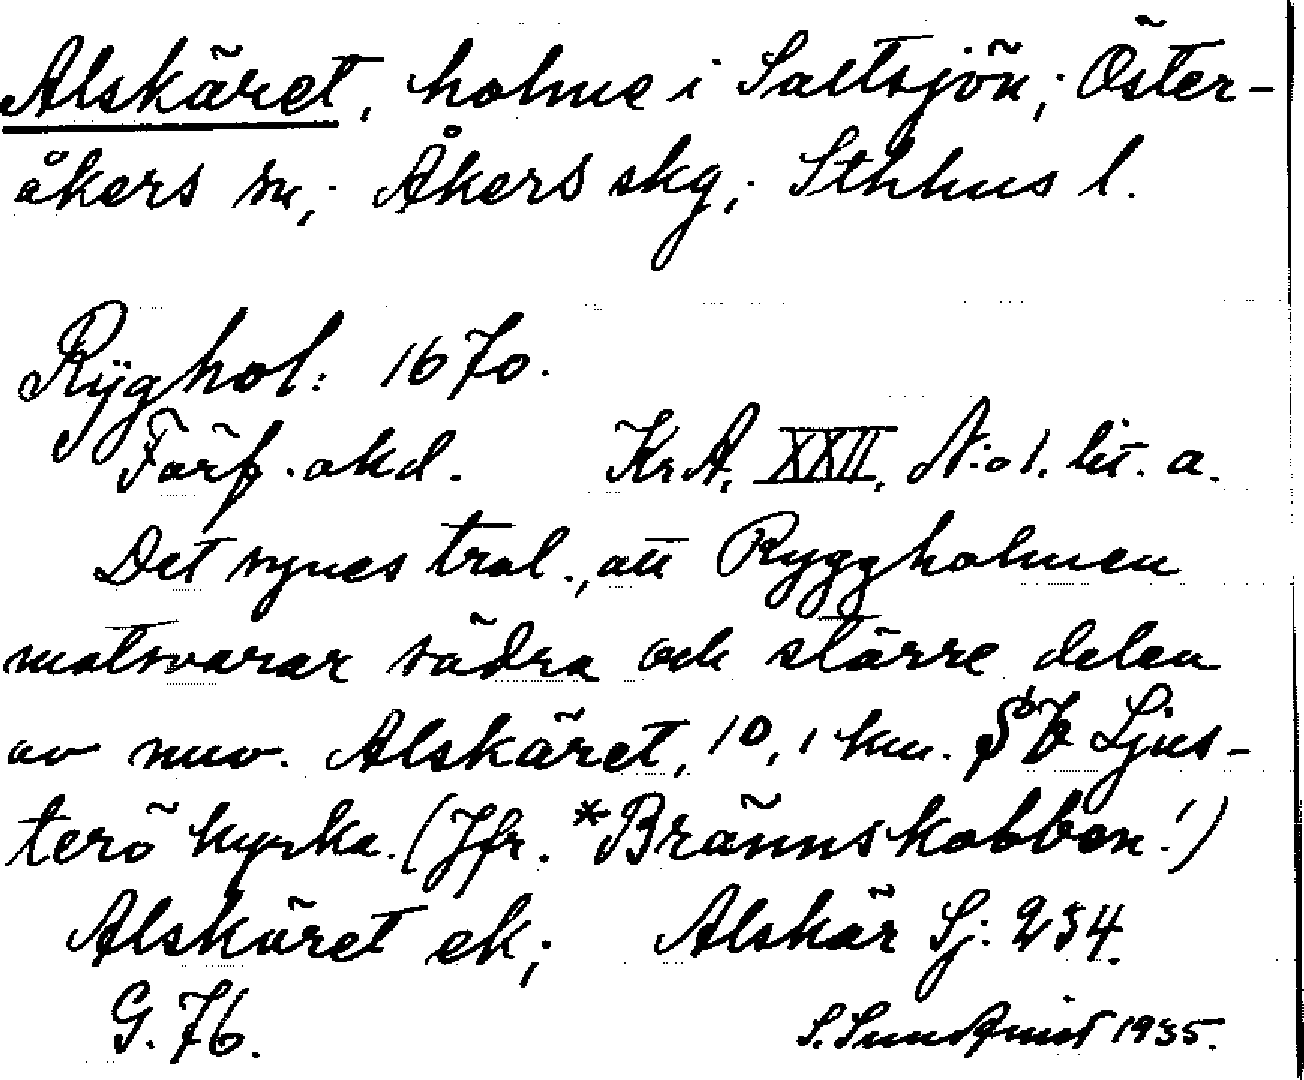 Alskäret, holme i Saltsjön; Öster-
åkers sn; Åkers skg; Sthlms l.
Rÿghol: 1670.
Förf. okd. Kr.A. XXII, N:o 1. lit. a.
Det synes trol., att Ryggholmen
motsvarar södra och större delen
av nuv. Alskäret, 10,1 km. Ljus-
terö kyrka. (Jfr. *Brännskobben!)
Alskäret ek; Alskär Sj. 234.
G. 76.
S. Sundquist 1935.